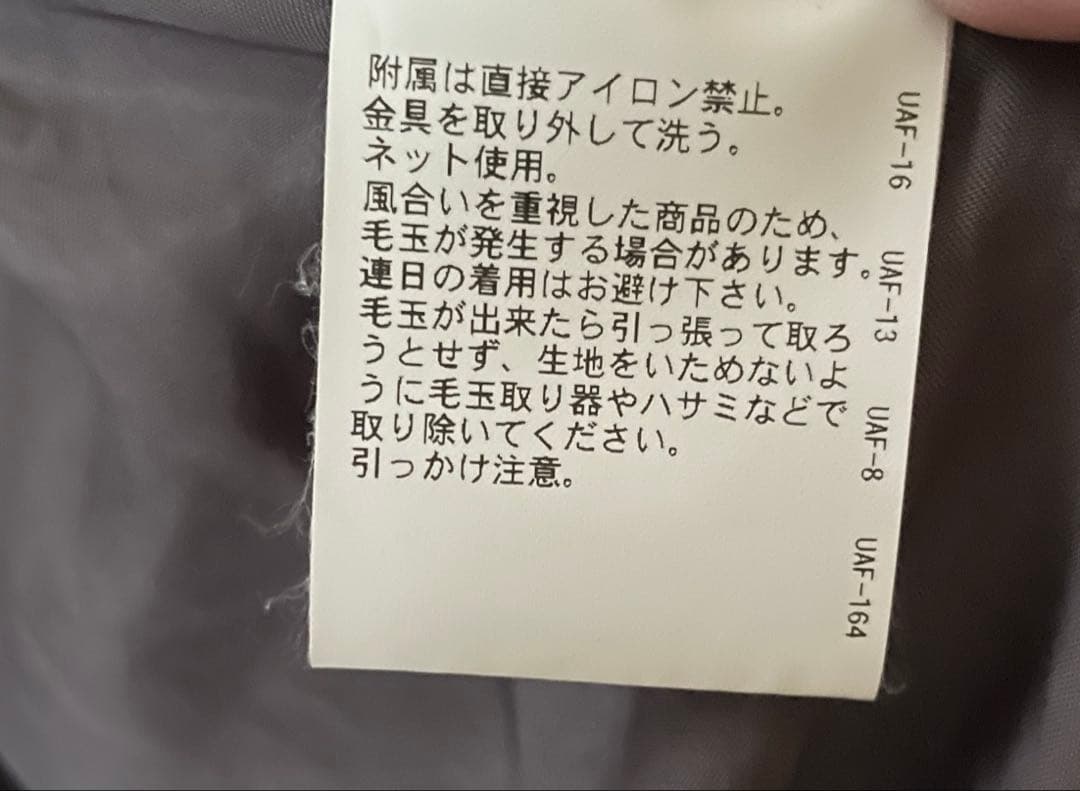 附属は直接アイロン禁止。
金具を取り外して洗う。
ネット使用。
風合いを重視した商品のため、
毛玉が発生する場合があります。
連日の着用はお避け下さい。
毛玉が出来たら引っ張って取ろ
うとせず、生地をいためないよ
うに毛玉取り器やハサミなどで
取り除いてください。
引っかけ注意。
UAF-16
UAF-13
UAF-8
UAF-164